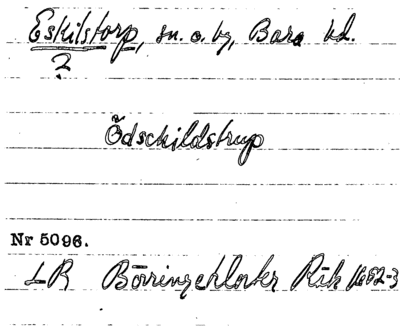 Eskilstorp, sn. o. by, Bara hd.
?
Ödschildstrup
Nr 5096.
LR Börringekloster Räk 1652-3